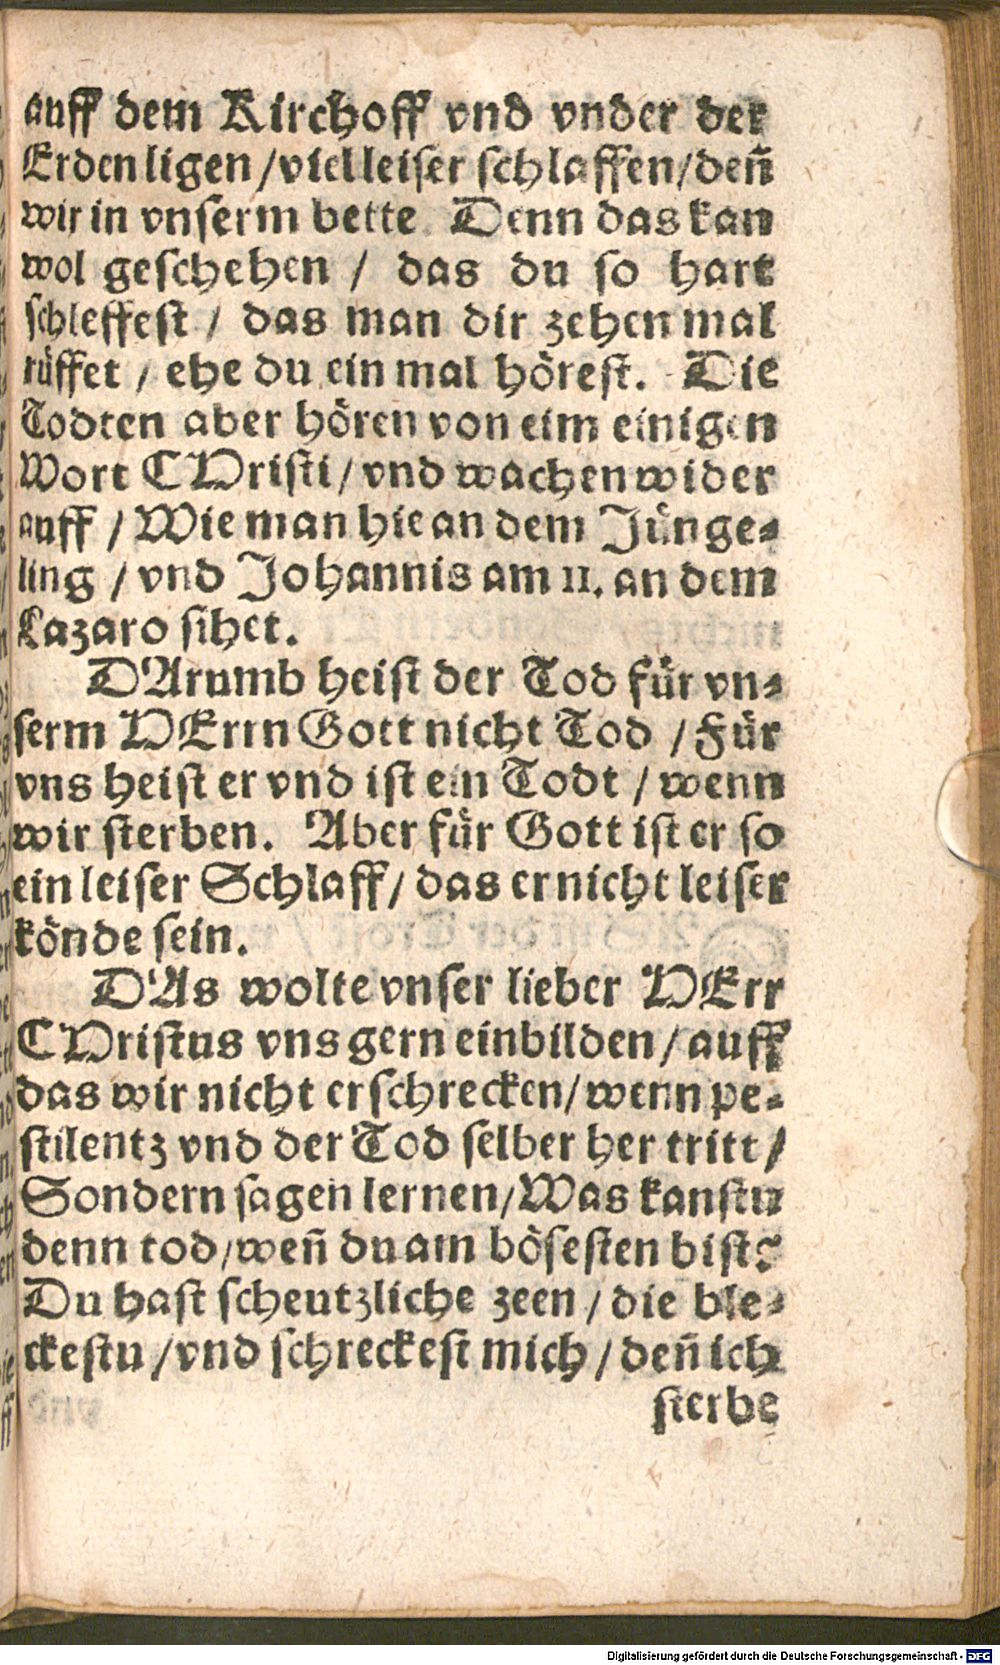 auff dem Kirchoff vnd vnder der
Erden ligen / viel leiser schlaffen / deñ
wir in vnserm bette. Denn das kan
wol geschehen / das du so hart
schleffest / das man dir zehen mal
rüffet / ehe du ein mal hörest. Die
Todten aber hören von eim einigen
Wort CHristi / vnd wachen wider
auff / Wie man hie an dem Jünge-
ling / vnd Johannis am 11. an dem
Lazaro sihet.
DArumb heist der Tod für vn-
serm HErrn Gott nicht Tod / Für
vns heist er vnd ist ein Todt / wenn
wir sterben. Aber für Gott ist er so
ein leiser Schlaff / das er nicht leiser
könde sein.
DAs wolte vnser lieber HErr
CHristus vns gern einbilden / auff
das wir nicht erschrecken / wenn pe-
stilentz vnd der Tod selber her tritt /
Sondern sagen lernen / Was kanstu
denn tod / weñ du am bösesten bist?
Du hast scheutzliche zeen / die ble-
ckestu / vnd schreckest mich / deñ ich
sterbe
Digitalisierung gefördert durch die Deutsche Forschungsgemeinschaft - DFG